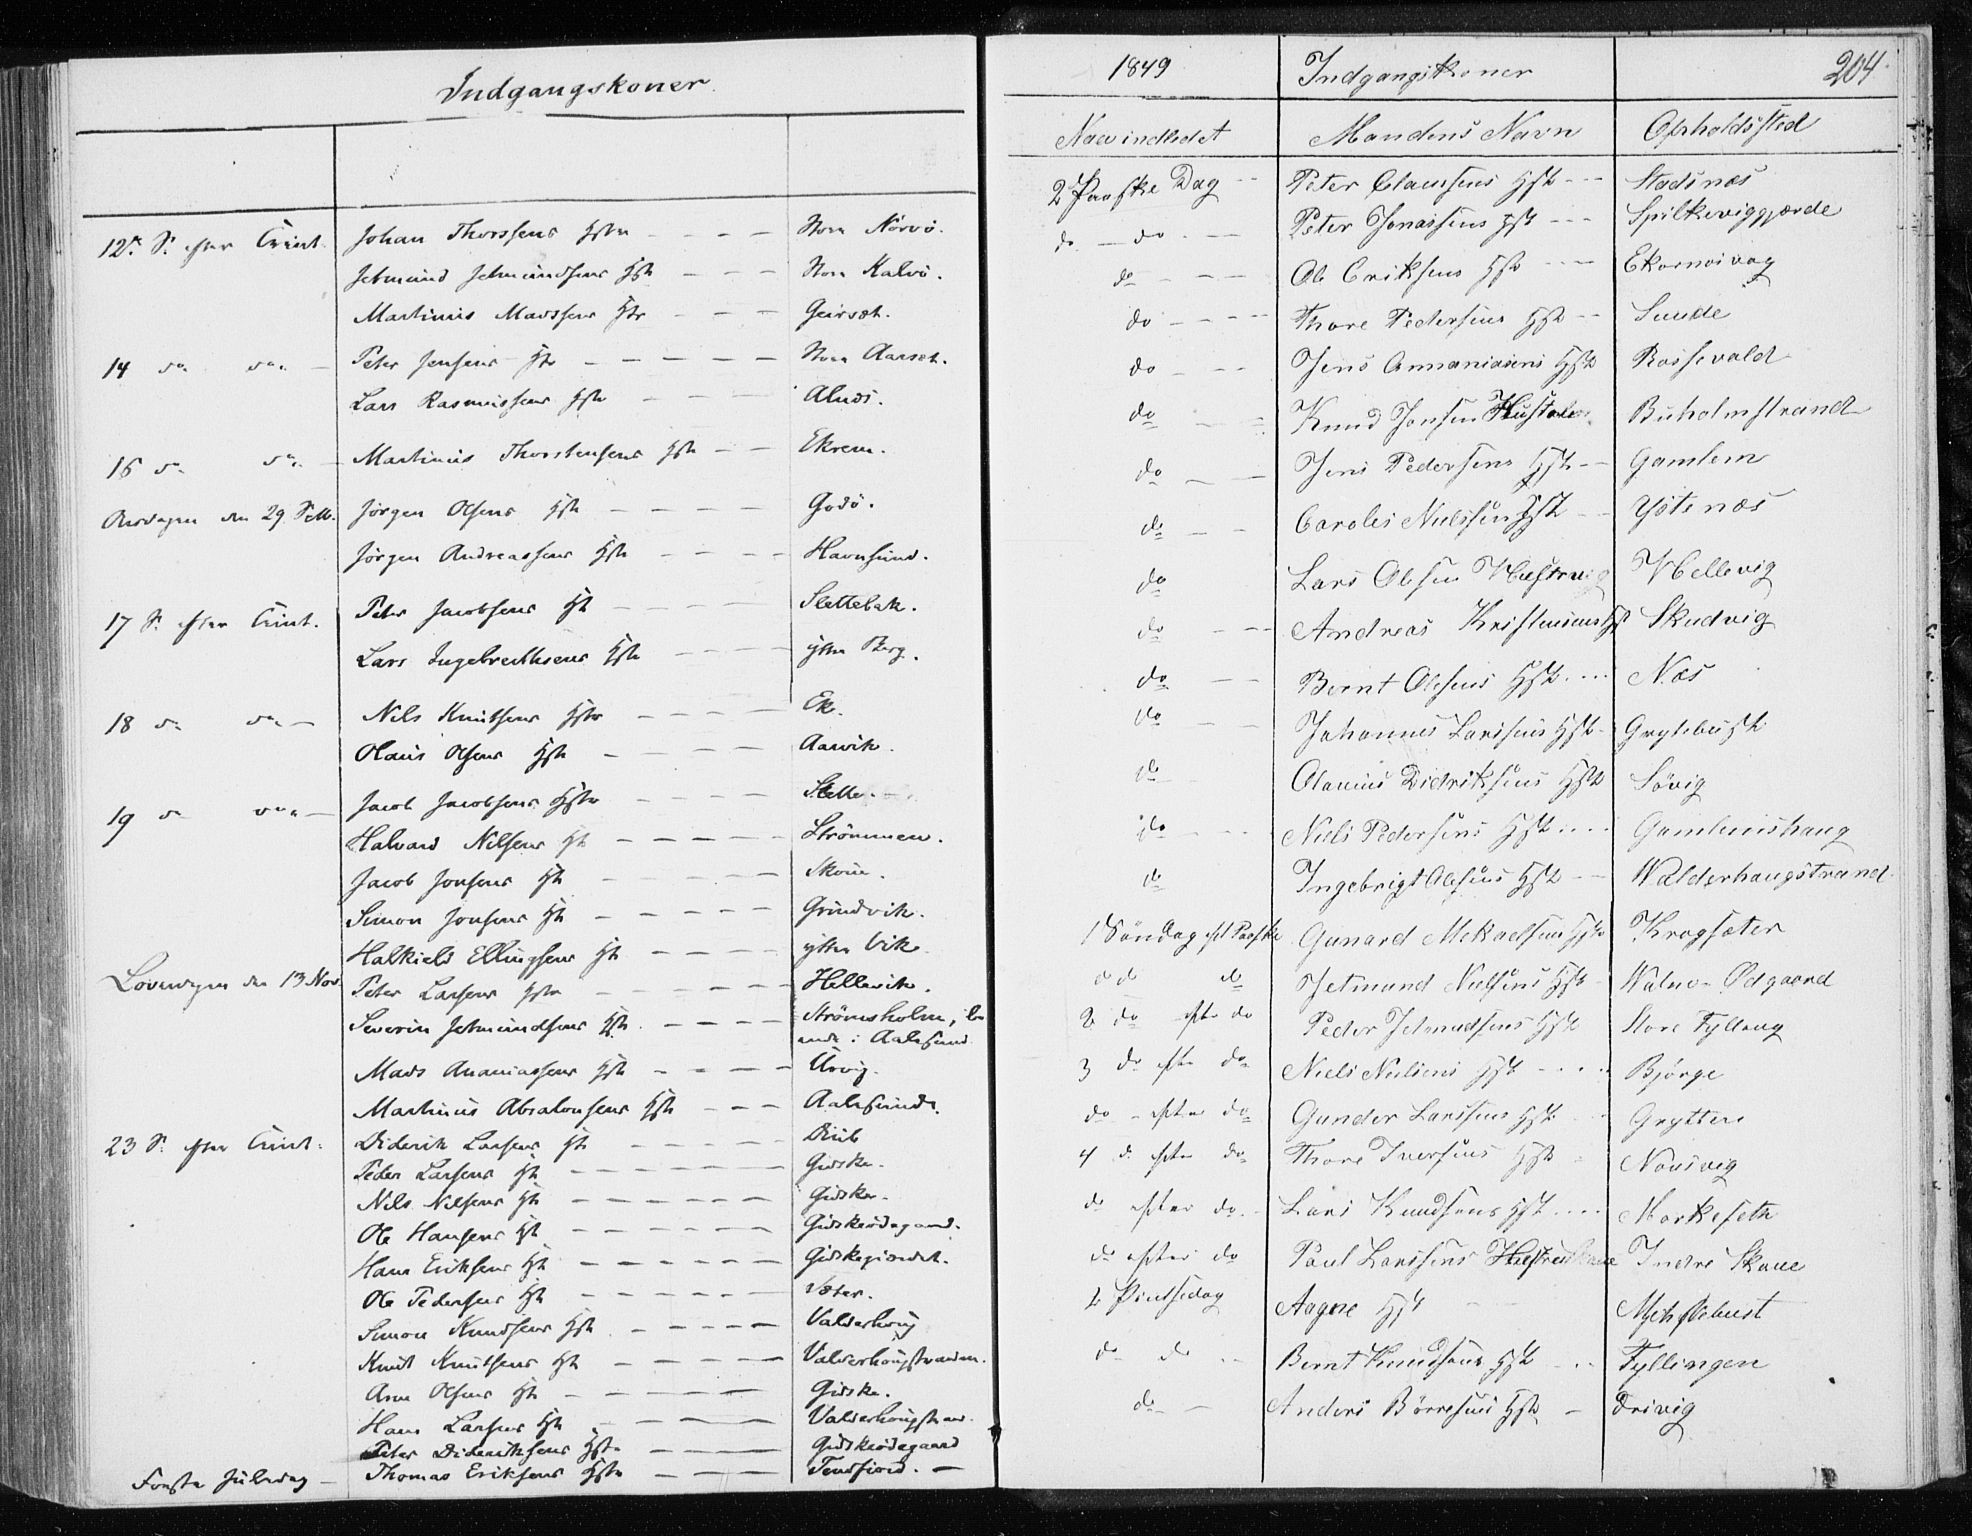 Indgangskoner.
12te S. efter Trinit. Johan Thorssens Hstr - - - - Store Nörvö.
Jetmund Jetmundsens Hst - - - Store Kalvö.
Martinus Madssens Hstr - - - Geirsæt.
14 do do - Peter Jensens Hstr - - - - - Store Aarset.
Lars Rasmussens Hstr - - - - Alnæs.
16 do do - Martinus Thorstensens Hst - - Ekrem.
Onsdagen den 29 Jörgen Olsens Hst - - - - - Godö.
Jörgen Andreassens Hst - - - - Havnsund.
17 S. efter Trinit. Peter Jacobsens Hst - - - - Slettebak.
Lars Ingebrechtsens Hst - - - - ytter Berg.
18 do do - Nils Knutsens Hstr - - - - Ek.
Olaus Olsens Hst - - - - - Aarvik.
19 do do - Jacob Jacobsens Hstr - - - - Slette.
Halvard Nilsens Hst - - - - - Strömmen.
Jacob Jonsens Hst - - - - - Skoue.
Simon Jonsens Hst - - - - - Grindvik.
Halkield Ellingsens Hst - - - - ytter Vik
Löverdagen den 13 Nov. Peter Larsens Hstr - - - - - Hellevik.
Severin Jetmundsens Hst - - - - Strömsholm,
ende i Aalesund
Mads Ananiassens Hst - - - - Urvig.
Martinus Absalonsens Hst - - - Aalesund.
23 S. efter Trinit. Diderik Larsens Hst - - - - - Diub
Peder Larsens Hst - - - - - - Gidske.
Nils Nilsens Hst - - - - - - Gidske.
Ole Hansens Hst - - - - - - Gidskeödegaard.
Hans Eriksens Hst - - - - - - Gidskegierdet.
Ole Pedersens Hst - - - - - - Sæter.
Simon Knudsens Hst - - - - - Valderhoug
Knut Knutsens Hst - - - - - Valderhougstranden.
Arne Olsens Hst - - - - - Gidske.
Hans Larsens Hst - - - - Valderhougstrand.
Peter Dideriksens Hst - - - - Gidskeödegaard
Förste Juledag - Thomas Eriksens Hstr - - - - Tendfiord. -
1849 Indgangskoner 204
Naar indledet Mandens Navn Opholdssted
2 Paaske Dag - - Peter Clausens Hst - - - Stadsnæs
do - do - - Peter Jonassens Hst - - - Spilkeviggjærde
do - - - Ole Eriksens Hst - - - Ekornæsvaag
do - - - - Thore Pedersens Hst - - Sunde
do - - - Jens Annaniasens Hst Rossevald
do - - Knud Jonsens Hustroe Buholmstrand
do - - Jens Pedersens Hst - - Gamlem
do - - Caroles Nielssens Hst - - Ystenæs
do Lars Olesens Hustrue Hellevig
do - - - Andreas Kristensens Hst Skudvig
do - - Bernt Olesens Hst - - - Næs
do - - Johannes Larssens Hst - Grytebust
do - - Olavius Didriksens Hst Sövig
do - - - Niels Pedersens Hst - - - Gamlemshaug
do Ingebrigt Olesens Hst - - Walderhaugstrand
1 Söndag eft Paaske Gunard Mekaelsens Hst Krogsæter
do do Jetmund Nielsens Hst - Walder Ödgaard
2 do efter do Peder Jetmudsens Hst Store Fylling
3 do efter do Niels Nielsens Hst - - - - Bjørge
do - efter do Gunder Larssens Hst - - Gryttere
4 d. efter do Thore Iversens Hst - Nousvig
do efter do - Lars Knudsens Hst - - - Morkeseth
do efter do Paul Larssens Hustrue Indre Skoue
2 Pintsedag Aagne Hst - - Myklebust
do do - - Bernt Knudsens Hst - - - Fyllingen
do - Anders Börresens Hst - Drivig